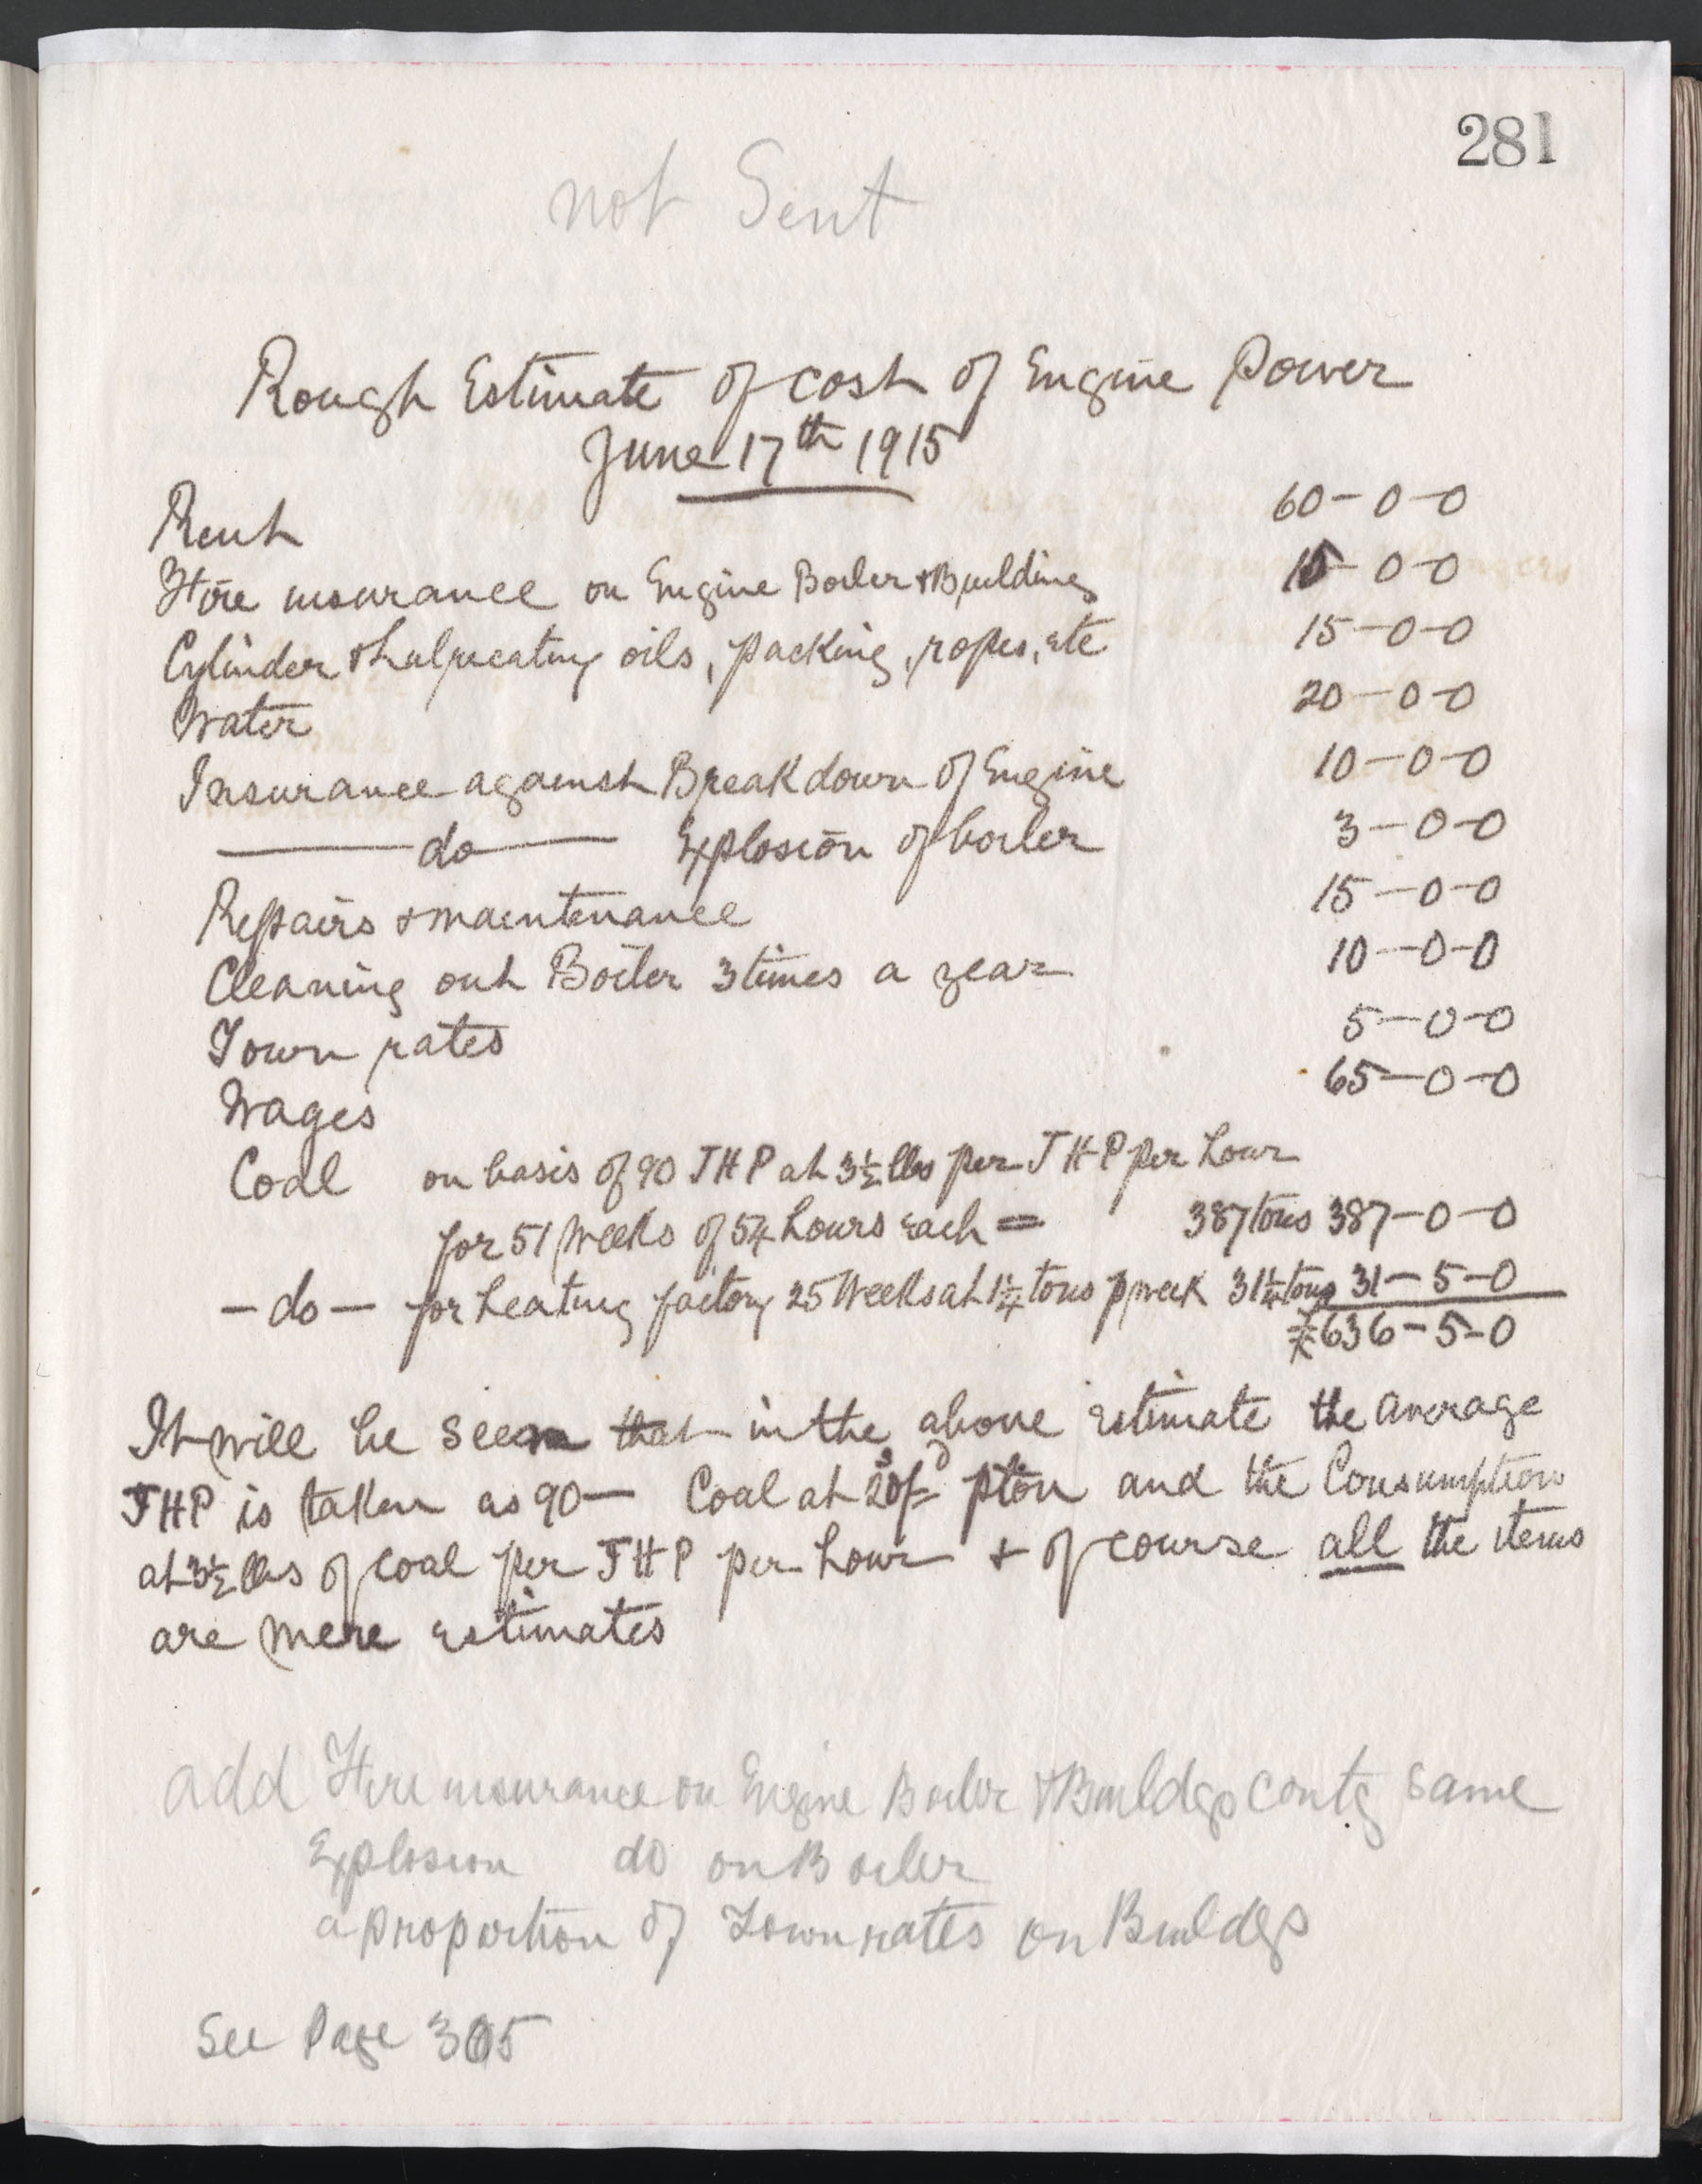 281
not Sent
Rough Estimate of cost of Engine Power
June 17th 1915
Rent 60-0-0
Fire insurance on Engine Boiler & Building 15-0-0
Cylinder & Lubricating oils, packing, ropes, etc 15-0-0
Water 20-0-0
Insurance against Breakdown of Engine 10-0-0
— do — Explosion of boiler 3-0-0
Repairs & maintenance 15-0-0
Cleaning out Boiler 3 times a year 10-0-0
Town rates 5-0-0
Wages 65-0-0
Coal on basis of 90 IHP at 3½ lbs per IHP per hour
for 51 weeks of 54 hours each = 387 tons 387-0-0
— do — for heating factory 25 Weeks at 1¼ tons p week 31¼ tons 31-5-0
£636-5-0
It will be seen that in the above estimate the average
IHP is taken as 90 — Coal at 20/- p ton and the Consumption
at 3½ lbs of coal per IHP per hour & of course all the items
are mere estimates
add Fire insurance on Engine Boiler & Buildgs contg same
Explosion do on Boiler
a proportion of Town rates on Buildgs
See Page 305